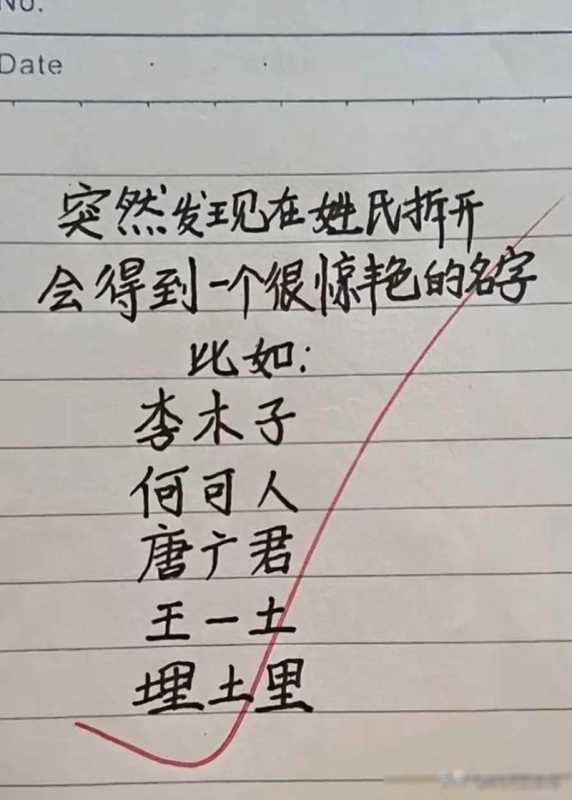 No.
Date
突然发现在姓氏拆开
会得到一个很惊艳的名字
比如:
李木子
何可人
唐广君
王一土
埋土里